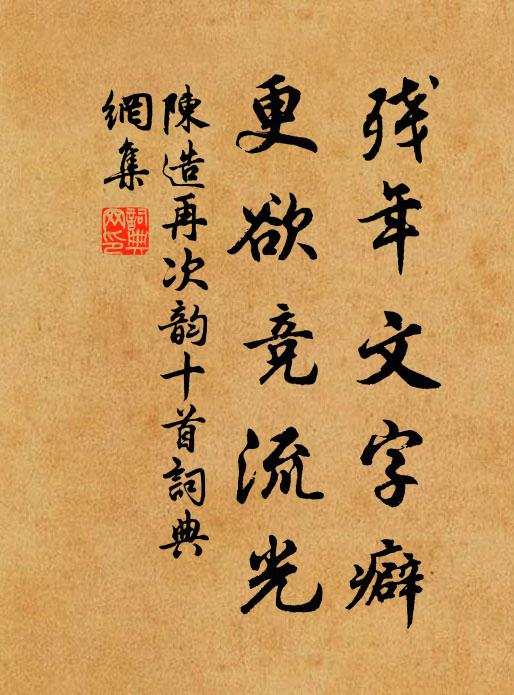 残年文字癖
更欲竞流光
陳造再次韵十首詞典
網集
詞典網印